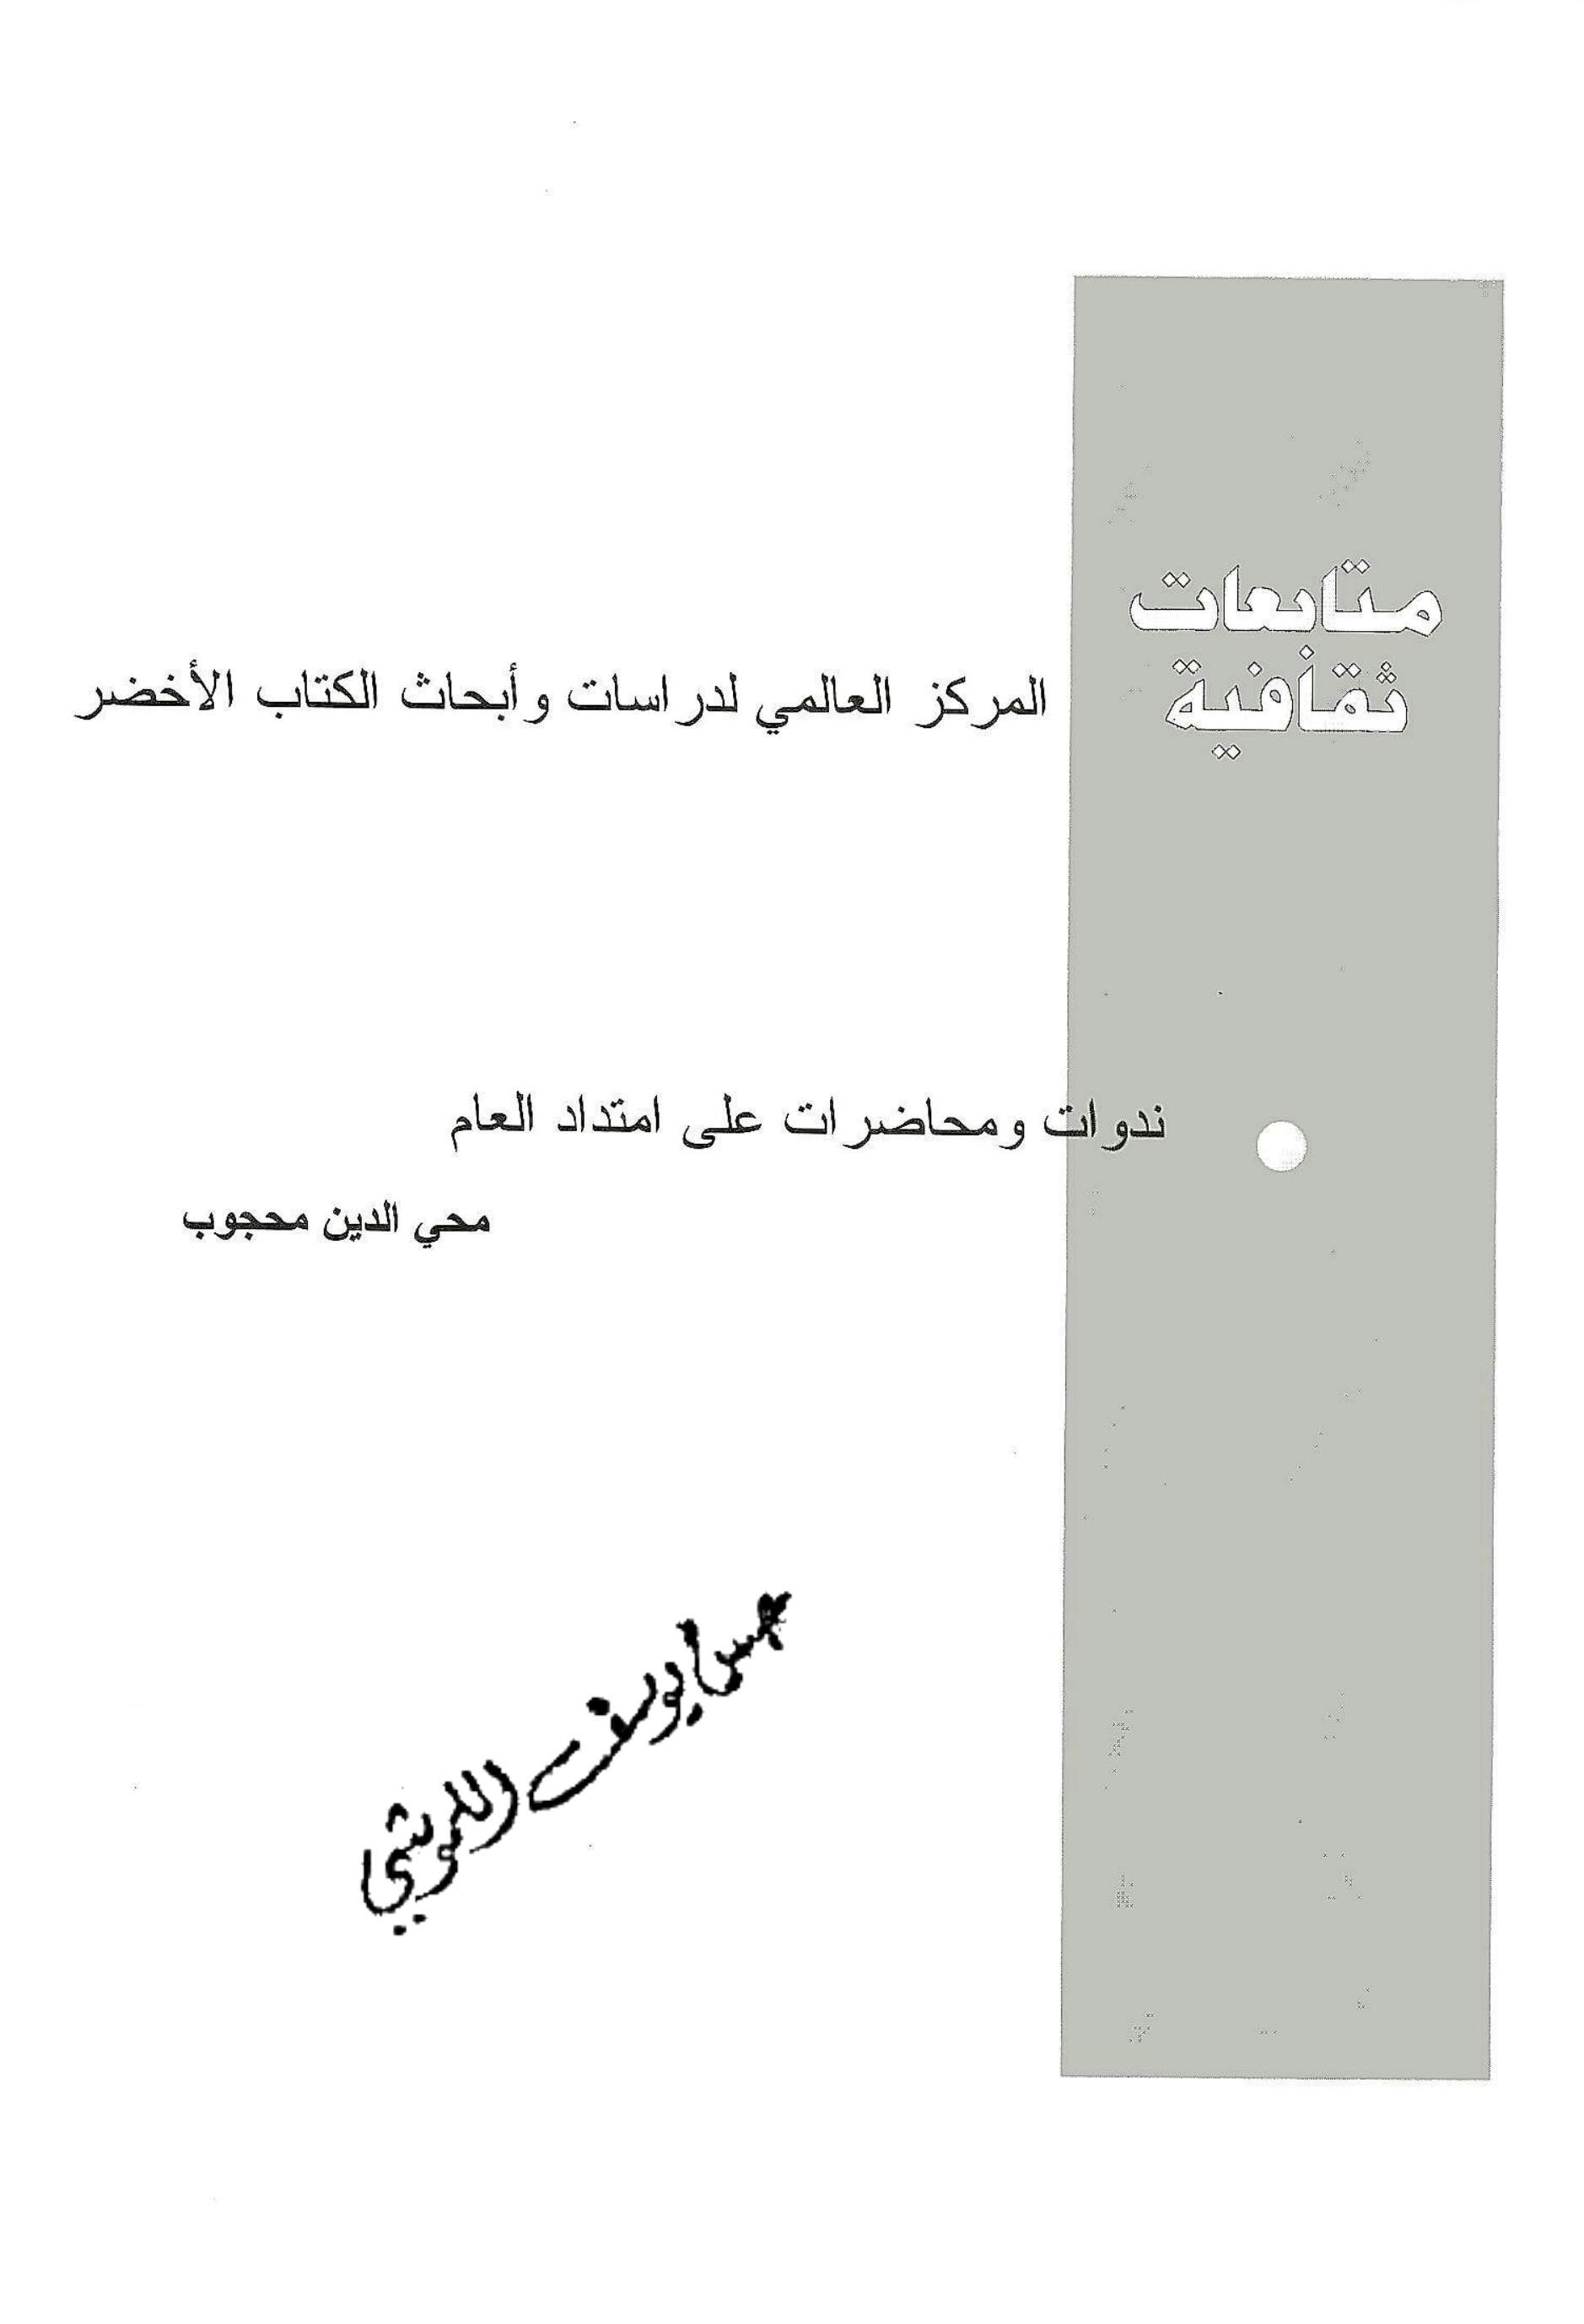 متابعات
ثقافية
المركز العالمي لدراسات وأبحاث الكتاب الأخضر
ندوات ومحاضرات على امتداد العام
محي الدين محجوب
يوسف